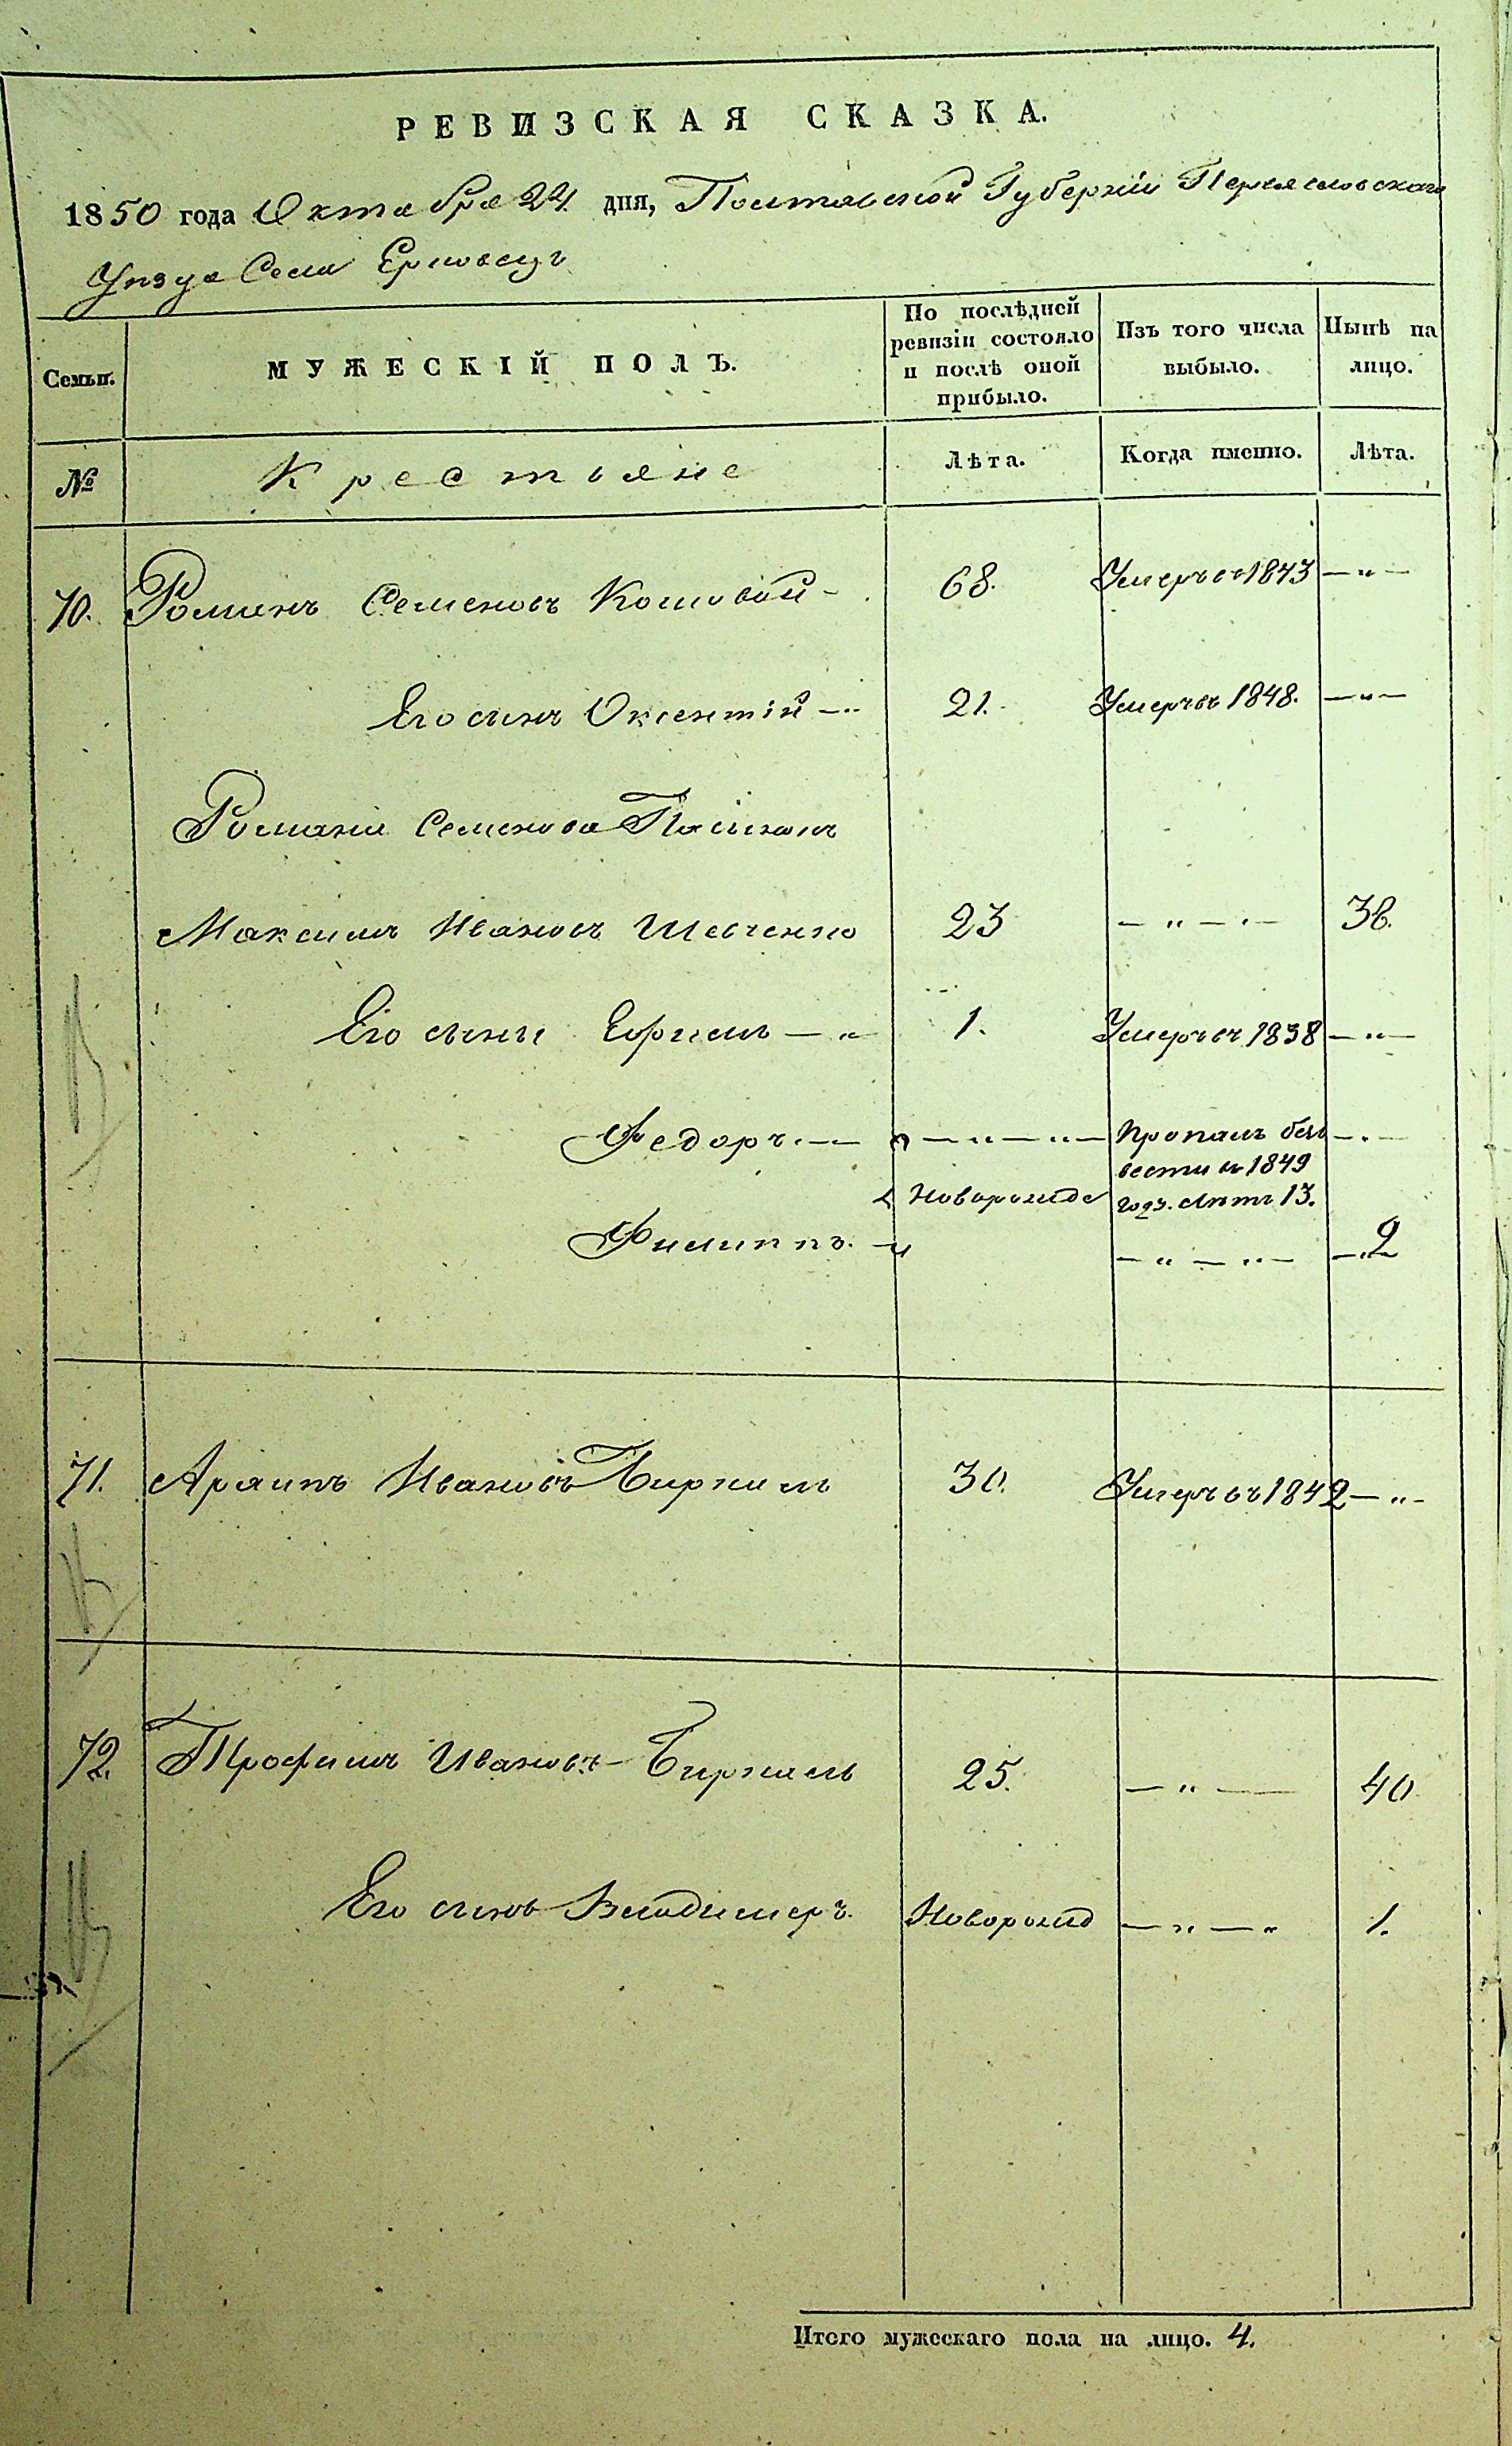 РЕВИЗСКАЯ СКАЗКА.
1850 года Октября 24 дня, Полтавской Губерніи Переясловскаго
Уѣзда Села Ерковецъ
Семьи. МУЖЕСКІЙ ПОЛЪ. По послѣдней ревизіи состояло и послѣ оной прибыло. Изъ того числа выбыло. Нынѣ на лицо.
№ Крестьяне Лѣта. Когда именно. Лѣта.
70. Романъ Семеновъ Кошовый 68. Умеръ въ 1843 — " —
Его сынъ Оксентій — " 21. Умеръ въ 1848. — " —
Романа Семенова Пасынокъ
Максимъ Ивановъ Шевченко 23 — " — " — 38.
Его сыны Ефимъ — " 1. Умеръ въ 1838 — " —
Федоръ. — — " — " — Пропалъ безъ — " —
вести въ 1849
Новорожде году. Лѣтъ 13.
Филиппъ. — " — " — " — 2
71. Архипъ Ивановъ 30. Умеръ въ 1842 — " —
72. Трофимъ Ивановъ 25. — " — 40
Его сынъ Владимеръ. Новорожд — " — " 1.
Итого мужескаго пола на лицо. 4.